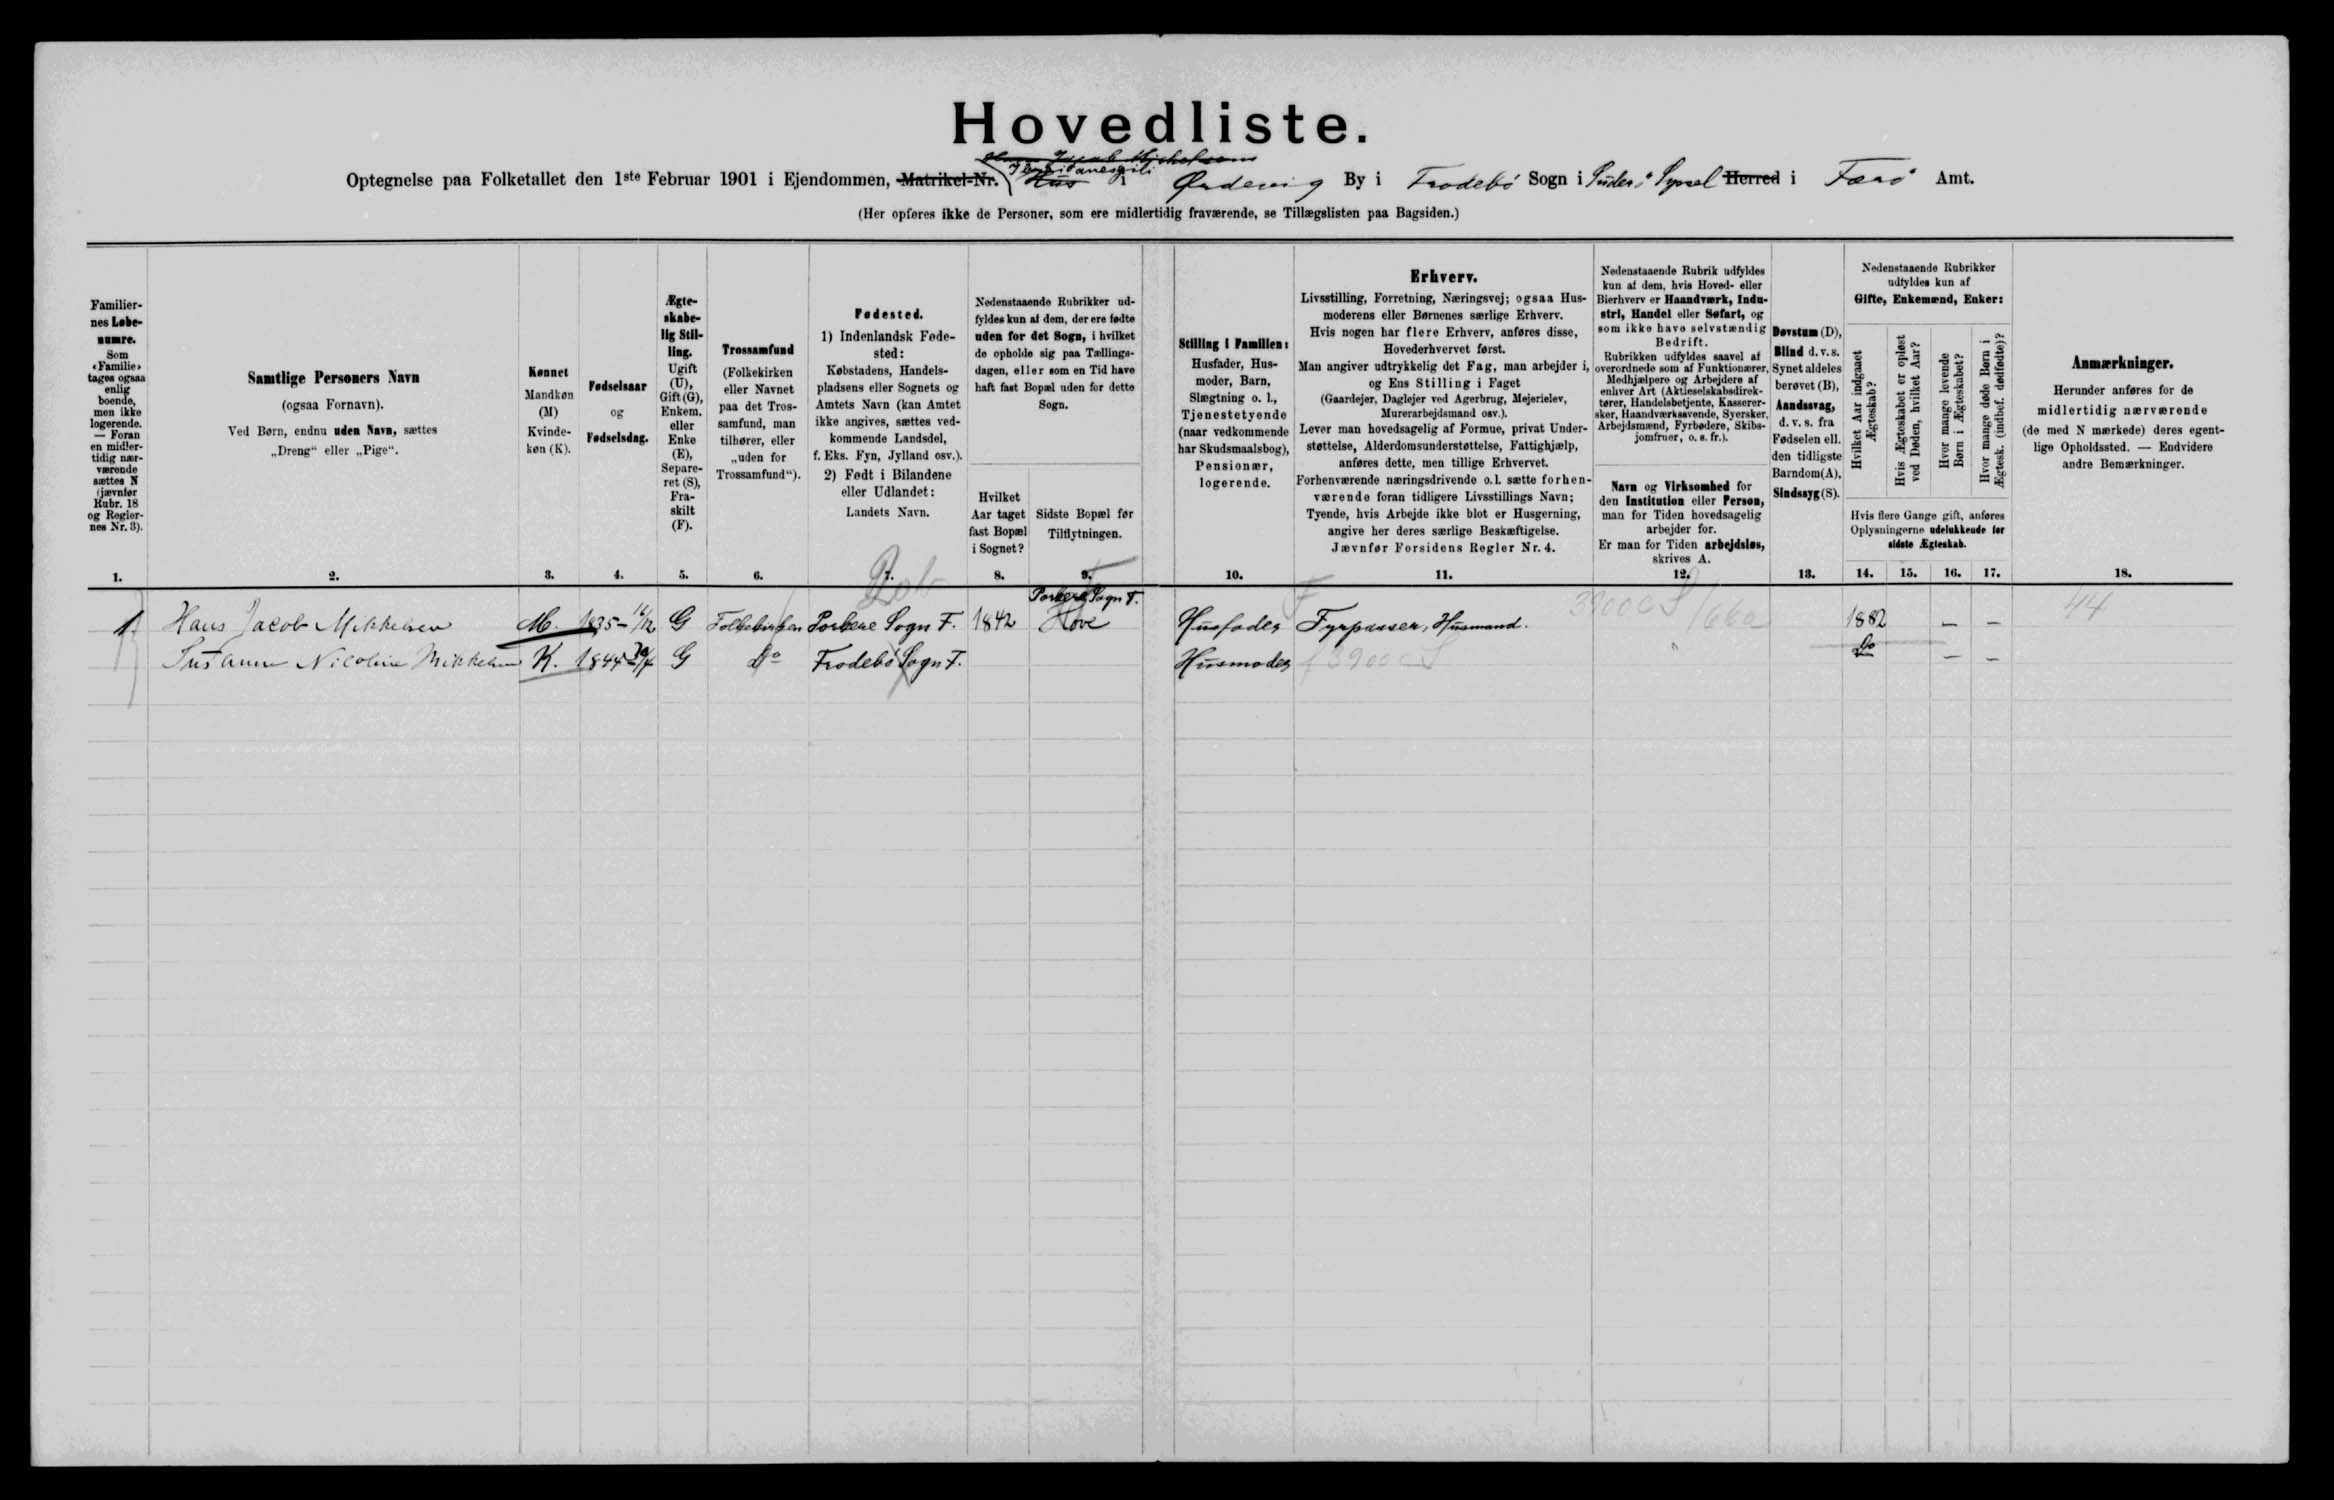 Hovedliste.
Optegnelse paa Folketallet den 1ste Februar 1901 i Ejendommen, Matrikel-Nr. Hus i Ørdevig By i Frodebö Sogn i Suderö Syssel Herred i Færö Amt.
(Her opføres ikke de Personer, som ere midlertidig fraværende, se Tillægslisten paa Bagsiden.)
Familiernes Løbenumre.
Som «Familie» tages ogsaa enlig boende, men ikke logerende. — Foran en midlertidig nærværende sættes N (jævnfør Rubr. 18 og Reglernes Nr. 3).
Samtlige Personers Navn
(ogsaa Fornavn).
Ved Børn, endnu uden Navn, sættes
„Dreng“ eller „Pige“.
Kønnet
Mandkøn
(M)
Kvinde-
køn (K).
Fødselsaar
og
Fødselsdag.
Ægte-
skabe-
lig Stil-
ling.
Ugift
(U),
Gift (G),
Enkem.
eller
Enke
(E),
Separe-
ret (S),
Fra-
skilt
(F).
Trossamfund
(Folkekirken
eller Navnet
paa det Tros-
samfund, man
tilhører, eller
„uden for
Trossamfund“).
Fødested.
1) Indenlandsk Føde-
sted:
Købstadens, Handels-
pladsens eller Sognets og
Amtets Navn (kan Amtet
ikke angives, sættes ved-
kommende Landsdel,
f. Eks. Fyn, Jylland osv.).
2) Født i Bilandene
eller Udlandet:
Landets Navn.
Nedenstaaende Rubrikker ud-
fyldes kun af dem, der ere fødte
uden for det Sogn, i hvilket
de opholde sig paa Tællings-
dagen, eller som en Tid have
haft fast Bopæl uden for dette
Sogn.
Hvilket
Aar taget
fast Bopæl
i Sognet?
Sidste Bopæl før
Tilflytningen.
Stilling i Familien:
Husfader, Hus-
moder, Barn,
Slægtning o. l.,
Tjenestetyende
(naar vedkommende
har Skudsmaalsbog),
Pensionær,
logerende.
Erhverv.
Livsstilling, Forretning, Næringsvej; ogsaa Hus-
moderens eller Børnenes særlige Erhverv.
Hvis nogen har flere Erhverv, anføres disse,
Hovederhvervet først.
Man angiver udtrykkelig det Fag, man arbejder i,
og Ens Stilling i Faget
(Gaardejer, Daglejer ved Agerbrug, Mejerielev,
Murerarbejdsmand osv.).
Lever man hovedsagelig af Formue, privat Under-
støttelse, Alderdomsunderstøttelse, Fattighjælp,
anføres dette, men tillige Erhvervet.
Forhenværende næringsdrivende o. l. sætte forhen-
værende foran tidligere Livsstillings Navn;
Tyende, hvis Arbejde ikke blot er Husgerning,
angive her deres særlige Beskæftigelse.
Jævnfør Forsidens Regler Nr. 4.
Nedenstaaende Rubrik udfyldes
kun af dem, hvis Hoved- eller
Bierhverv er Haandværk, Indu-
stri, Handel eller Søfart, og
som ikke have selvstændig
Bedrift.
Rubrikken udfyldes saavel af
overordnede som af Funktionærer,
Medhjælpere og Arbejdere af
enhver Art (Aktieselskabsdirek-
tører, Handelsbetjente, Kasserer-
sker, Haandværkssvende, Syersker,
Arbejdsmænd, Fyrbødere, Skibs-
jomfruer, o. s. fr.).
Navn og Virksomhed for
den Institution eller Person,
man for Tiden hovedsagelig
arbejder for.
Er man for Tiden arbejdsløs,
skrives A.
Døvstum (D),
Blind d. v. s.
Synet aldeles
berøvet (B),
Aandssvag,
d. v. s. fra
Fødselen ell.
den tidligste
Barndom (A),
Sindssyg (S).
Nedenstaaende Rubrikker
udfyldes kun af
Gifte, Enkemænd, Enker:
Hvilket Aar indgaaet
Ægteskab?
Hvis Ægteskabet er opløst
ved Døden, hvilket Aar?
Hvor mange levende
Børn i Ægteskabet?
Hvor mange døde Børn i
Ægtesk. (indbef. dødfødte)?
Hvis flere Gange gift, anføres
Oplysningerne udelukkende for
sidste Ægteskab.
Anmærkninger.
Herunder anføres for de
midlertidig nærværende
(de med N mærkede) deres egent-
lige Opholdssted. — Endvidere
andre Bemærkninger.
1. 2. 3. 4. 5. 6. 7. 8. 9. 10. 11. 12. 13. 14. 15. 16. 17. 18.
1 Hans Jacob Mikkelsen M. 1835-16/12 G Folkekirken Porkere Sogn F. 1842 Porkere Sogn F. Hove Husfader Fyrpasser, Husmand. 1882 — — 44
Susanne Nicoline Mikkelsen K. 1844 G Do Frodebö Sogn F. Husmoder Do — —